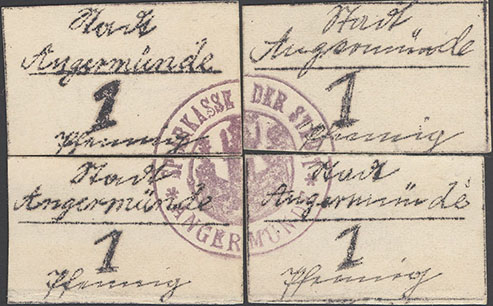 Stadt
Angermünde
1
Pfennig
Stadt
Angermünde
1
Pfennig
SPARKASSE DER STADT
* ANGERMÜNDE *
Stadt
Angermünde
1
Pfennig
Stadt
Angermünde
1
Pfennig